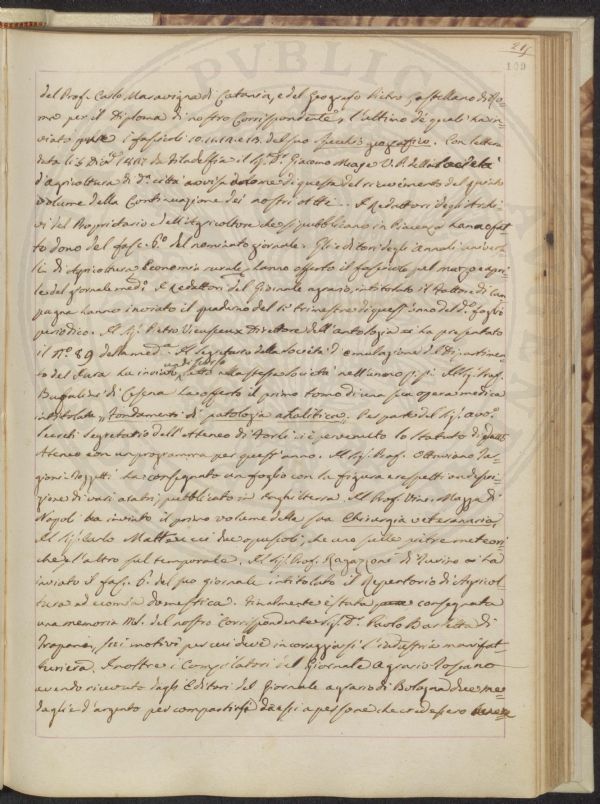 215
109
del Prof. Carlo Maravigna di Catania, e del Geografo Pietro Castellano di Ro-
ma per il Diploma di nostro Corrispondente, l'ultimo de' quali ha in-
viato i fascicoli 10. 11. 12. e 13. del suo specchio geografico. Con lettera
data li 6 Dic. 1827 da Filadelfia il Sig. D. Giacomo Mease V. P. della Società
d'agricoltura di d.a città avvisa del ricevimento del quinto
volume della Continuazione dei nostri Atti. I Redattori degli Archi-
vi del Proprietario e dell'Agricoltore che si pubblicano in Piacenza hanno fat-
to dono del fasc. 6.o del nominato giornale. Gli editori degli annali univer-
sali di Agricoltura Economia rurale hanno offerto il fascicolo pel marzo e apri-
le del giornale med.o I Redattori del Giornale agrario, intitolato il Fattore di Cam-
pagna hanno inviato il quaderno del 1.o trimestre di quest'anno del d.o foglio
periodico. Il Sig. Pietro Vieusseux Direttore dell'antologia ci ha presentato
il N.o 89 della med.a Il Segretario della Società d'emulazione del Dipartimen-
to del Jura ha inviato
della stessa società nell'anno
Il Sig. Prof.
Bufalini di Cesena ha offerto il primo tomo di una sua opera medica
intitolata „Fondamenti di patologia analitica„ Da parte del Sig. avv.o
Segretario dell'Ateneo di Forlì ci è pervenuto lo Statuto di questo
Ateneo con un programma per quest'anno. Il Sig. Prof. Ottaviano Tar-
gioni-Tozzetti ha consegnato un foglio con la figura e rispettiva descri-
zione di vari aratri pubblicato in Inghilterra. Il Prof. Vinc. Mazza di
Napoli ha inviato il primo volume della sua Chirurgia veterinaria,
Il Sig. Carlo Matteucci due opuscoli, che uno sulle pietre meteori-
che e l'altro sul temporale. Il Sig. Prof. Ragazzoni di Torino ci ha
inviato il fasc. 6.o del suo giornale intitolato il Repertorio di Agricol-
tura ed economia domestica. Finalmente è stata consegnata
una memoria Ms. del nostro Corrispondente Sig. D. Paolo Barletta di
Trapani, sui motivi per cui deve incoraggiarsi l'industria manifat-
turiera. Inoltre i Compilatori del Giornale agrario Toscano
avendo ricevuto dagli Editori del Giornale agrario di Bologna due me-
daglie d'argento per compartirsi da essi a persone che credessero